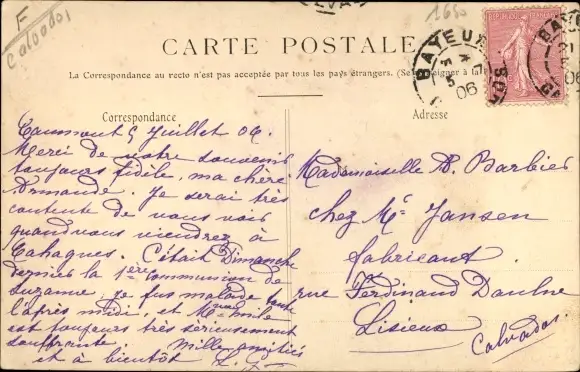 F
Calvados
1650
CARTE POSTALE
La Correspondance au recto n'est pas acceptée par tous les pays étrangers. (Se renseigner à la
REPUBLIQUE FRANÇAISE
BAYEUX
06
Correspondance
Caumont 5 Juillet 06.
Merci de votre souvenir
toujours fidèle, ma chère
Armande. Je serai très
contente de vous voir
quand vous viendrez à
Cahagnes. C'était Dimanche
dernier la 1ère Communion de
Suzanne, je fus malade toute
l'après midi, et Mme
est toujours très sérieusement
souffrante. Mille amitiés
et à bientôt
Adresse
Mademoiselle A. Barbier
chez Mr Jansen
fabricant.
rue Ferdinand Daulne
Lisieux
Calvados.